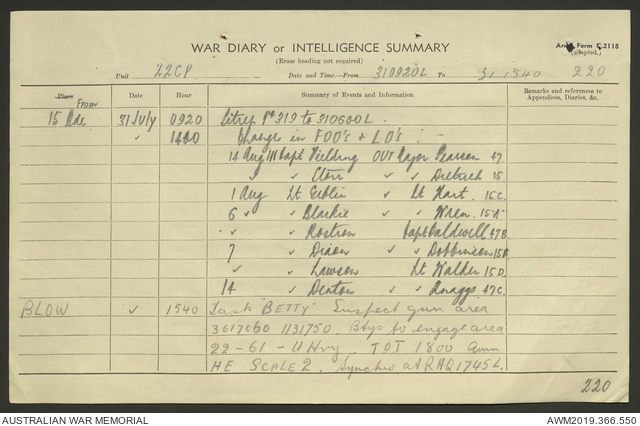 WAR DIARY or INTELLIGENCE SUMMARY
Army Form C.2118
(Erase heading not required)
(Adapted.)
Unit 22CP Date and Time.—From 310920L To 31 1540 220
Place From Date Hour Summary of Events and Information Remarks and references to Appendices, Diaries, &c.
15 Bde 31 July 0920 Sitrep No 319 to 310600L.
✓ 1400 Change in FOO's & LO's :-
14 Aug IN Capt Fielding OUT Major Pearson 47
✓ ✓ ✓ ✓ 15
1 Aug Lt ✓ Lt Hart. 15C.
6 ✓ ✓ Blackie ✓ ✓ Wren. 15A
✓ ✓ Rostron Capt Caldwell 47B
7 ✓ Dixon ✓ ✓ Dobbinson 15B
✓ ✓ Lawson Lt Walder 15D.
14 ✓ Denton ✓ ✓ Knaggs 47C.
BLOW ✓ 1540 Task "BETTY" Suspect gun area
3617060 1131750. Btys to engage area
22-61-U Hvy. TOT 1800 Amm
HE SCALE 2. Synchro at RHQ 1745L.
220
AUSTRALIAN WAR MEMORIAL AWM2019.366.550